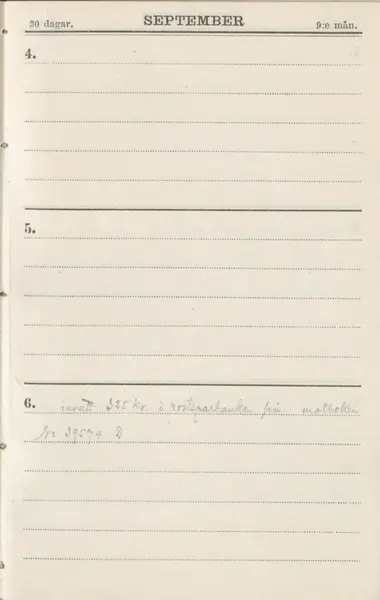 30 dagar.
SEPTEMBER
9:e mån.
4.
5.
6. insatt 325 kr. i postsparbanken motboken
No 39574 D